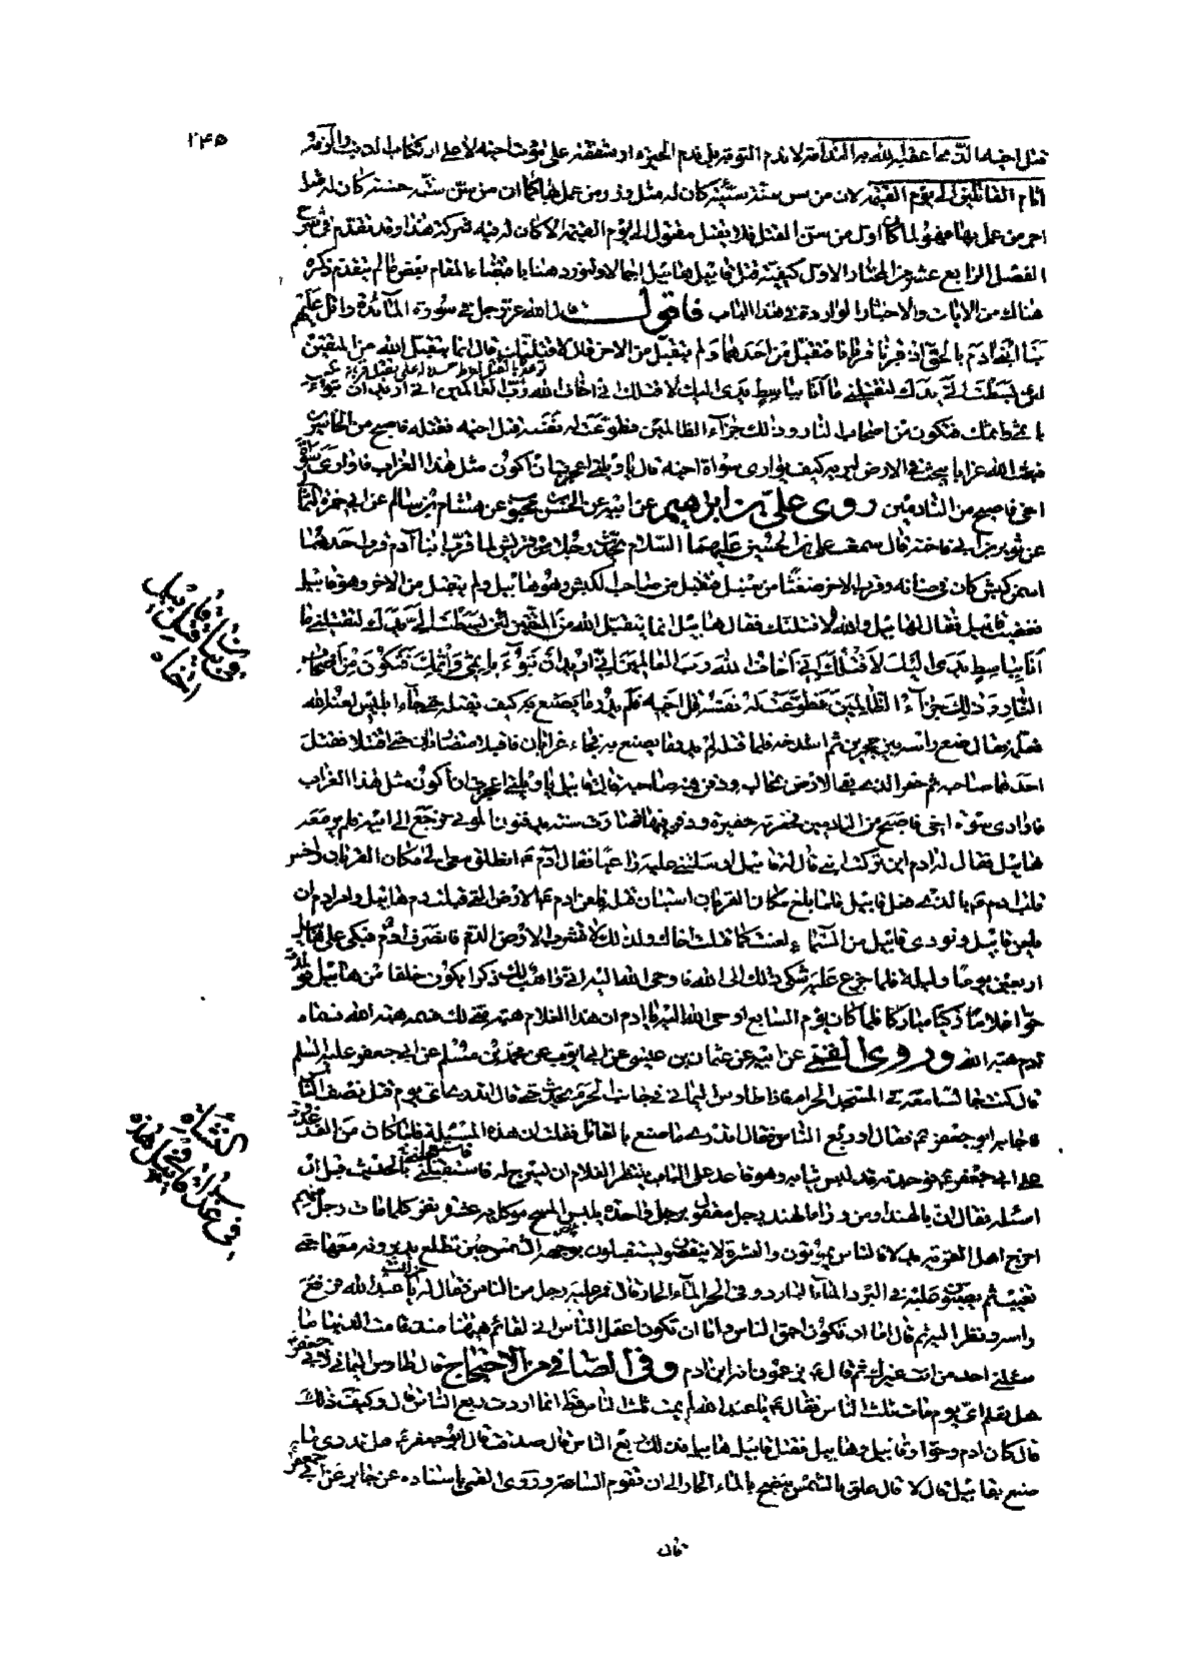 ٢٤٥
قتل اخيه الذي اعقبه الله به الندامة لا ندم التوبة بل ندم الحيرة او شفقته على موت اخيه لا على ارتكاب الذنب والزمته
اثام القاتلين الى يوم القيمة لان من سن سنة سيئة كان له مثل وزر من عمل بها كما ان من سن سنة حسنة كان له مثل
اجر من عمل بها فهو لما كان اول من سن القتل فلا يقتل مقتول الى يوم القيمة الا كان له فيه شركة هذا وقد تقدم في شرح
الفصل الرابع عشر من المختار الاول كيفية قتل قابيل هابيل اجمالا ونورد هنا باقتضاء المقام بعض ما لم يتقدم ذكره
هناك من الايات والاخبار الواردة في هذا الباب فاقول قال الله عز وجل في سورة المائدة واتل عليهم
نبأ ابني ادم بالحق اذ قربا قربانا فتقبل من احدهما ولم يتقبل من الاخر قال لاقتلنك قال انما يتقبل الله من المتقين
لئن بسطت الي يدك لتقتلني ما انا بباسط يدي اليك لاقتلك اني اخاف الله رب العالمين اني اريد ان تبوء
باثمي واثمك فتكون من اصحاب النار وذلك جزاء الظالمين فطوعت له نفسه قتل اخيه فقتله فاصبح من الخاسرين
فبعث الله غرابا يبحث في الارض ليريه كيف يواري سوأة اخيه قال يا ويلتى اعجزت ان اكون مثل هذا الغراب فاواري سوأة
اخي فاصبح من النادمين روى علي بن ابراهيم عن ابيه عن الحسن بن محبوب عن هشام بن سالم عن ابي حمزة الثمالي
عن ثوير بن ابي فاختة قال سمعت علي بن الحسين عليهما السلام يحدث رجلا من قريش لما قرب ابنا آدم قرب احدهما
اسمن كبش كان في ضانه وقرب الاخر ضغثا من سنبل فتقبل من صاحب الكبش وهو هابيل ولم يتقبل من الاخر وهو قابيل
فغضب قابيل فقال لهابيل والله لاقتلنك فقال هابيل انما يتقبل الله من المتقين لئن بسطت الي يدك لتقتلني ما
أنا بباسط يدي اليك لاقتلك اني اخاف الله رب العالمين اني اريد ان تبوء باثمي واثمك فتكون من اصحاب
النار وذلك جزاء الظالمين فطوعت له نفسه قتل اخيه فلم يدر ما يصنع به كيف يقتله حتى جاء ابليس لعنه الله
فعلمه فقال ضع راسه بين حجرين ثم اشدخه فلما قتله لم يدر ما يصنع به فجاء غرابان فاقبلا يتضاربان حتى اقتتلا فقتل
احدهما صاحبه ثم حفر الذي بقي الارض بمخالبه ودفن فيه صاحبه قال قابيل يا ويلتى اعجزت ان اكون مثل هذا الغراب
فاواري سوءة اخي فاصبح من النادمين فحفر له حفيرة ودفن فيها فصارت سنة يدفنون الموتى فرجع الى ابيه فلم ير معه
هابيل فقال له ادم اين تركت ابني قال له قابيل ارسلتني عليه راعيا فقال آدم ع انطلق معي الى مكان القربان واحس
قلب ادم ع بالذي فعل قابيل فلما بلغ مكان القربان استبان قتله فلعن ادم ع الارض التي قبلت دم هابيل وامر ادم ان
يلعن قابيل ونودي قابيل من السماء لعنت كما قتلت اخاك ولذلك لا تشرب الارض الدم فانصرف ادم ع يبكي على هابيل
اربعين يوما وليلة فلما جزع عليه شكى ذلك الى الله فاوحى الله اليه اني واهب لك ذكرا يكون خلفا من هابيل فولدت
حوا غلاما زكيا مباركا فلما كان يوم السابع اوحى الله اليه يا ادم ان هذا الغلام هبة مني لك فسمه هبة الله فسماه
ادم هبة الله وروى القمي عن ابيه عن عثمان بن عيسى عن ابي ايوب عن محمد بن مسلم عن ابي جعفر عليه السلم
قال كنت جالسا معه في المسجد الحرام فاذا طاوس اليماني في جانب الحرم يحدث حتى قال اتدري اي يوم قتل نصف الناس
فاجابه ابو جعفر ع فقال او ربع الناس فقال اتدري ما صنع بالقاتل فقلت ان هذه المسئلة فلما كان من الغد غدوت
على ابي جعفر ع فوجدته قد لبس ثيابه وهو قاعد على الباب ينتظر الغلام ان يسرج له فاستقبلني بالحديث قبل ان
اسئله فقال ان بالهند او من وراء الهند رجل معقول برجل واحدة يلبس المسح موكل به عشرة نفر كلما مات رجل منهم
اخرج اهل القرية بدله فالناس يموتون والعشرة لا ينقصون يستقبلون بوجهه الشمس حين تطلع يديرونه معها حتى
تغيب ثم يصبون عليه في البرد الماء البارد وفي الحر الماء الحار قال فمر عليه رجل من الناس فقال له من انت يا عبد الله فرفع
راسه ونظر اليه ثم قال اما ان تكون احمق الناس واما ان تكون اعقل الناس اني لقائم هيهنا منذ قامت الدنيا ما
سئلني احد من انت غيرك ثم قال ع يزعمون انه ابن ادم وفي الصافي من الاحتجاج قال طاوس اليماني لابي جعفر
هل تعلم اي يوم مات ثلث الناس فقال ع يا عبد الله لم يمت ثلث الناس قط انما اردت ربع الناس قال وكيف ذلك
قال كان ادم وحوا وقابيل وهابيل فقتل قابيل هابيل فذلك ربع الناس قال صدقت قال ابو جعفر ع هل تدري ما
صنع بقابيل قال لا قال علق بالشمس ينضح بالماء الحار الى ان تقوم الساعة وروى القمي باسناده عن جابر عن ابي جعفر
قال